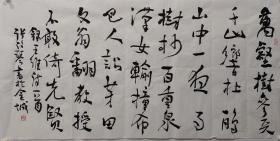 萬壑樹參天
千山響杜鵑
山中一夜雨
樹杪百重泉
漢女輸橦布
巴人訟芋田
文翁翻教授
不敢倚先賢
錄王維詩一首
書於金城